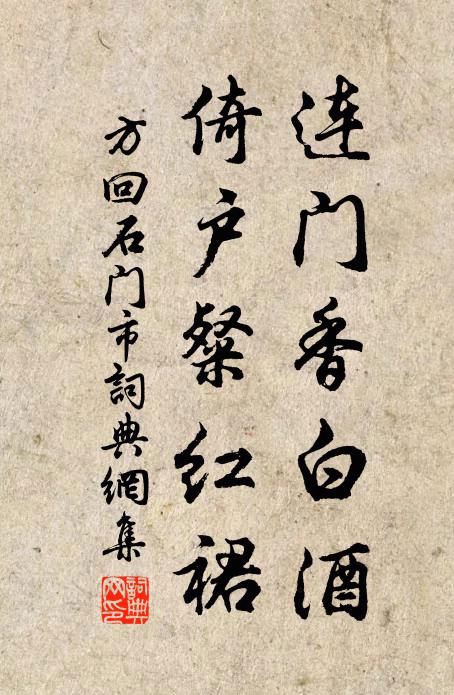 连门香白酒
倚户粲红裙
方回石门市詞典網集
詞典网印